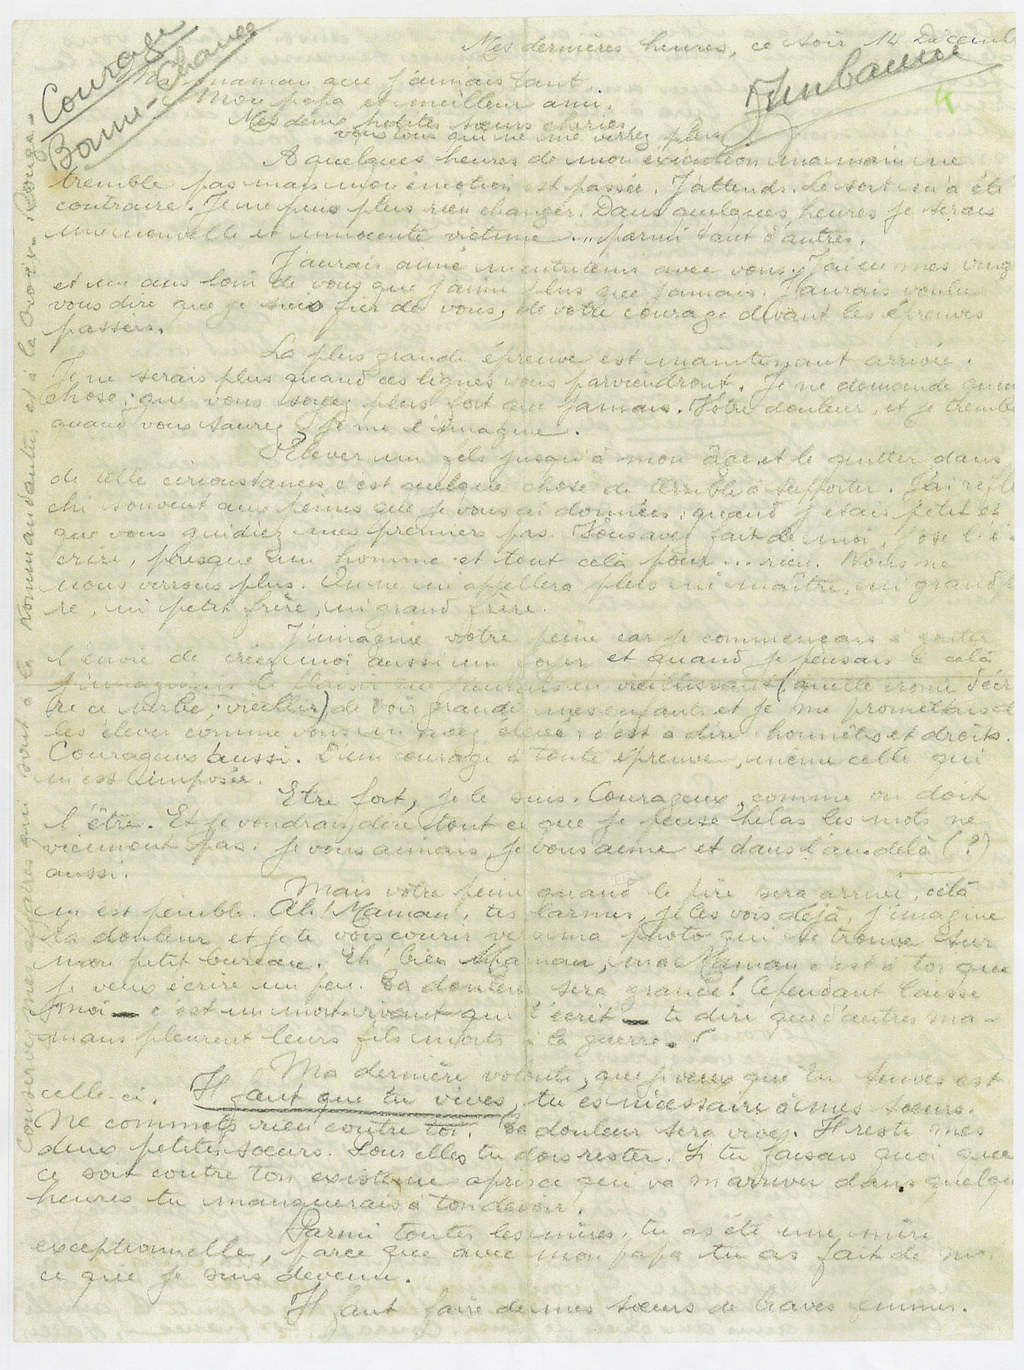 Courage
Bonne-Chance
Mes dernières heures, ce soir 14 Décemb
maman que j'aimais tant.
Mon papa et meilleur ami.
Mes deux petites sœurs chéries
vous tous qui ne me verrez plus
A quelques heures de mon exécution ma main ne
tremble pas mais mon émotion est passée. J'attends. Le sort m'a été
contraire. Je ne peux plus rien changer. Dans quelques heures je serais
une nouvelle et innocente victime ... parmi tant d'autres.
J'aurais aimé m'entretenir avec vous. J'ai eu mes vingt
et un ans loin de vous que j'aime plus que jamais. J'aurais voulu
vous dire que je suis fier de vous, de votre courage devant les épreuves
passées.
La plus grande épreuve est maintenant arrivée.
Je ne serais plus quand ces lignes vous parviendront. Je ne demande qu'un
chose; que vous soyez plus fort que jamais. Votre douleur, et je tremble
quand vous saurez, je me l'imagine.
Elever un fils jusqu'à mon âge et le quitter dans
de telle circonstances c'est quelque chose de terrible à supporter. J'ai réflé
chi souvent aux peines que je vous ai données; quand j'étais petit et
que vous guidiez mes premiers pas. Vous avez fait de moi, j'ose l'é-
crire, presque un homme et tout celà pour ... rien. Nous ne
nous verrons plus. On ne m'appellera plus ni maître, ni grand
re, ni petit frère, ni grand frère.
J'imagine votre peine car je commençais à goûter
l'envie de créer moi aussi un foyer et quand je pensais à celà
j'imaginais le plaisir que j'aurais en vieillissant (quelle ironie d'écri
re ce verbe; vieillir) de voir grandir mes enfants et je me promettais d
les élever comme vous m'avez élevé; c'est à dire honnêtes et droits.
Courageux aussi. D'un courage à toute épreuve, même celle qui
m'est imposée.
Etre fort, je le suis. Courageux, comme on doit
l'être. Et je voudrais dire tout ce que je pense hélas les mots ne
viennent pas. Je vous aimais, je vous aime et dans l'au-delà (?)
aussi.
Mais votre peine quand le pire sera arrivé, celà
m'est pénible. Ah! Maman, tes larmes, je les vois déjà, j'imagine
ta douleur et je te vois courir vers ma photo qui se trouve sur
mon petit bureau. Eh! bien Maman, ma Maman c'est à toi que
je veux écrire un peu. Ta douleur sera grande! Cependant laisse
moi — c'est un mort vivant qui t'écrit — te dire que d'autres ma-
mans pleurent leurs fils morts à la guerre.
Ma dernière volonté, que je veux que tu suives est
celle-ci. Il faut que tu vives, tu es nécessaire à mes sœurs.
Ne commets rien contre toi. Ta douleur sera vive. Il reste mes
deux petites sœurs. Pour elles tu dois rester. Si tu faisais quoi que
ce soit contre ton existence après ce qui va m'arriver dans quelqu
heures tu manquerais à ton devoir.
Parmi toutes les mères, tu as été une mère
exceptionnelle, parce que avec mon papa tu as fait de moi
ce que je suis devenu.
Il faut faire de mes sœurs de braves femmes.
Conservez mes affaires qui sont à la Kommandantur et à la Croix-Rouge.